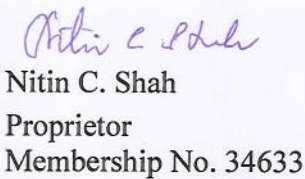 Nitin C Shah
Nitin C. Shah
Proprietor
Membership No. 34633